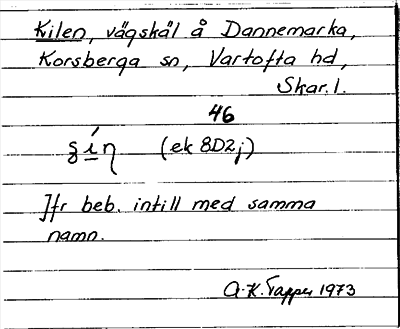 Kilen, vägskäl å Dannemarka,
Korsberga sn, Vartofta hd,
Skar.l.
46
(ek 8D2j)
Jfr beb. intill med samma
namn.
A.K. Tapper 1973